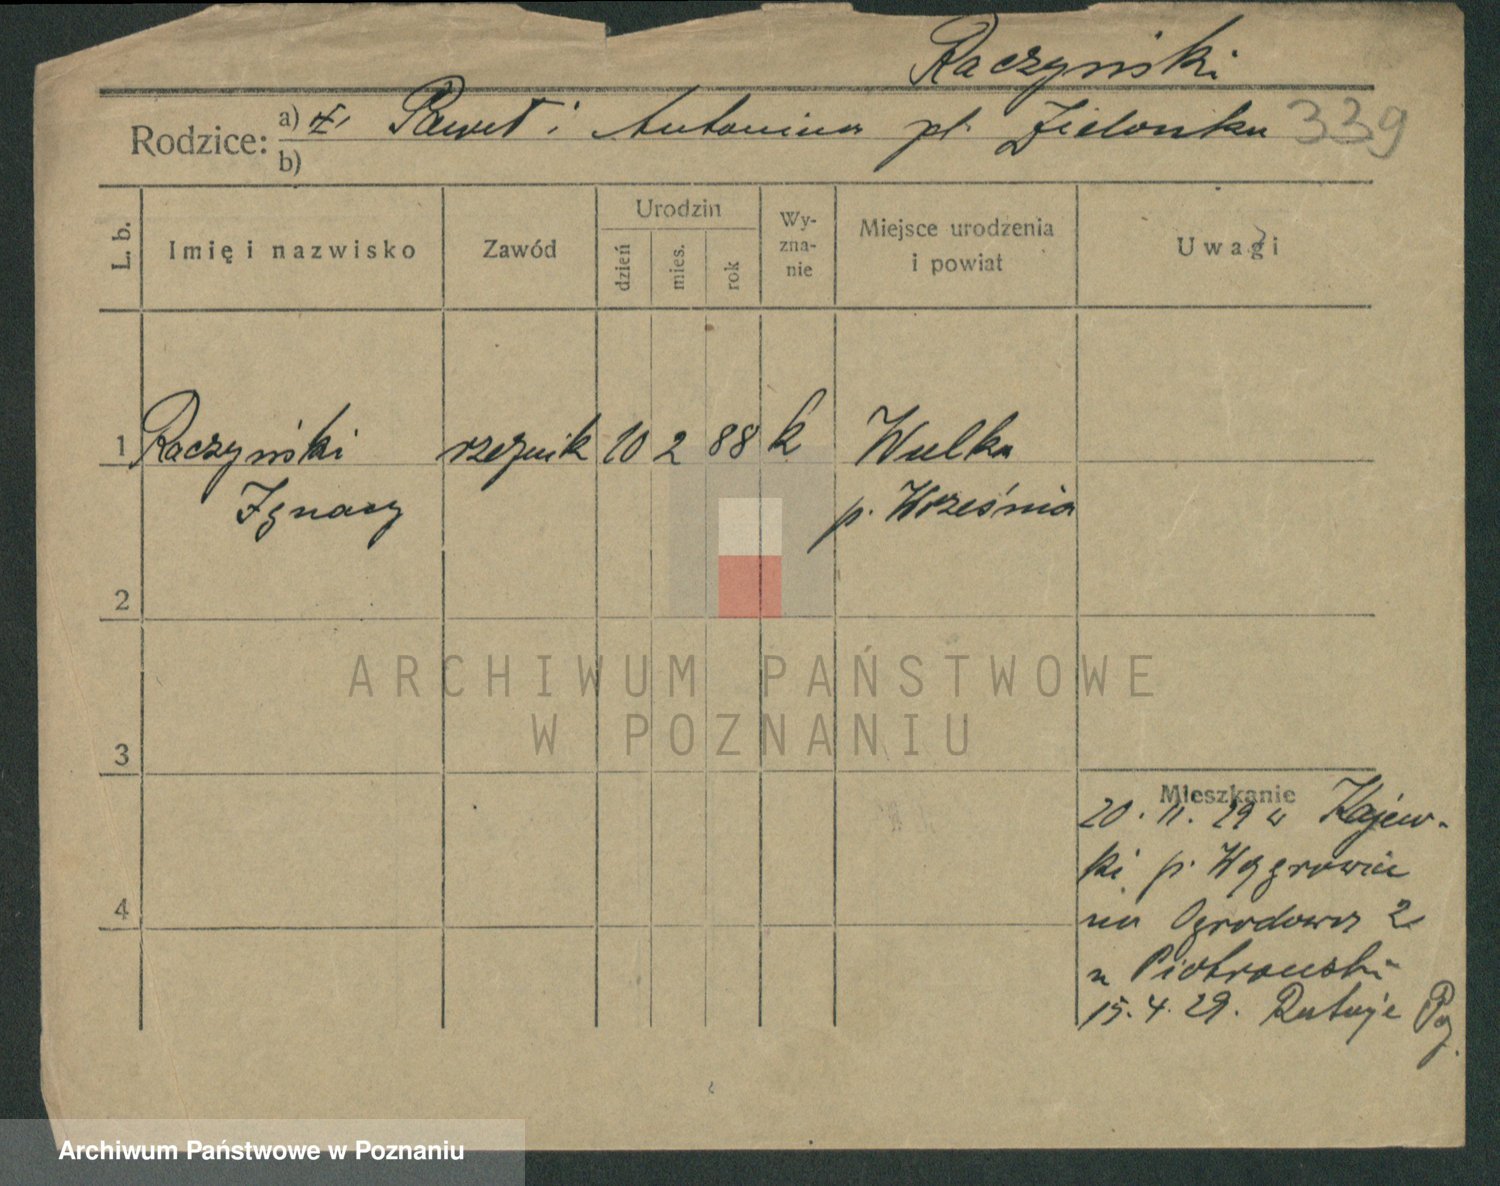 Raczyński
Rodzice: a) Paweł i Antonina Zielonka 339
b)
L. b. Imię i nazwisko Zawód Urodzin dzień mies. rok Wy-zna-nie Miejsce urodzenia i powiat Uwagi
1 Raczyński rzeźnik 10 2 88 k Wulka
Ignacy p. Września
2
ARCHIWUM PAŃSTWOWE
W POZNANIU
3
Mieszkanie
20. 11. 29 w Kajew-
ki p.
na Ogrodowa 2
u Piotrowski
4
15. 4. 29.
Archiwum Państwowe w Poznaniu